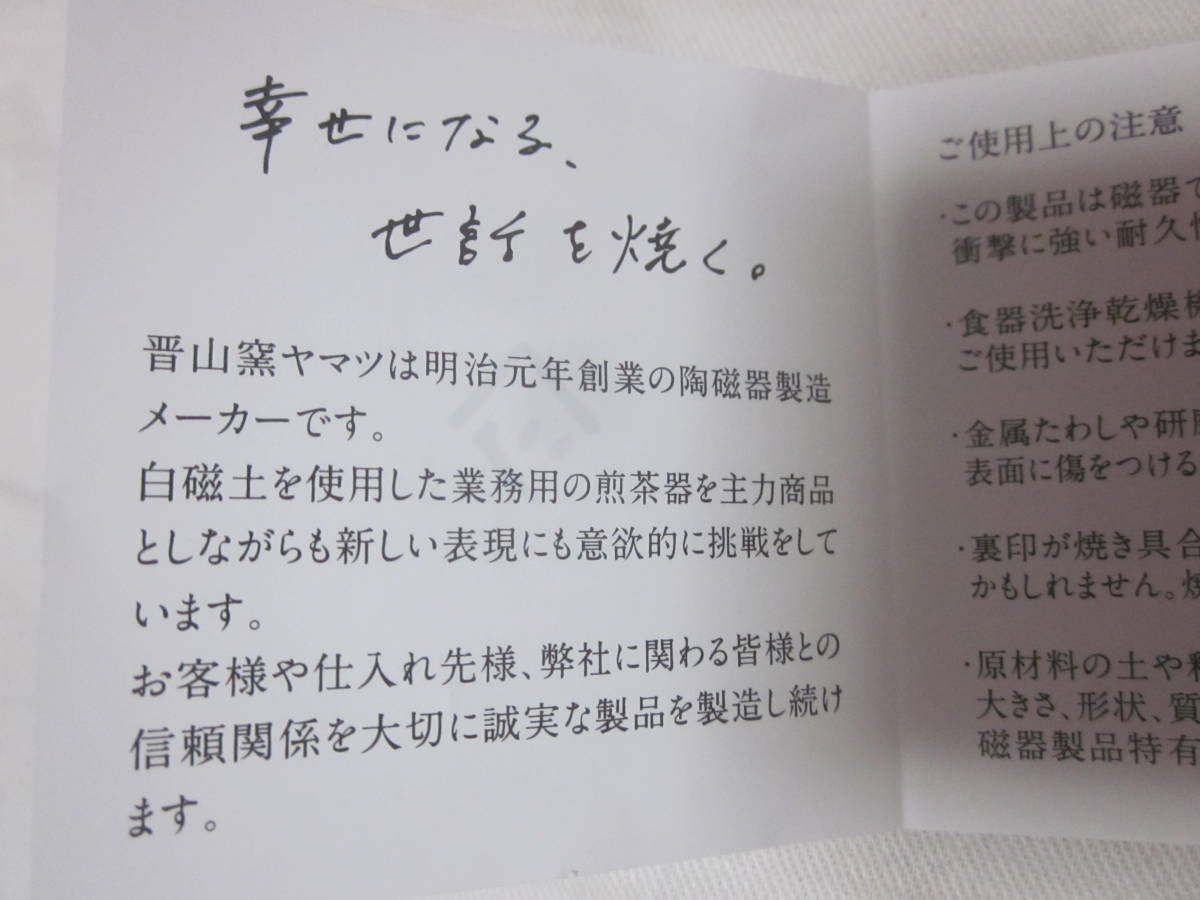 幸せになる、
世話を焼く。
晋山窯ヤマツは明治元年創業の陶磁器製造
メーカーです。
白磁土を使用した業務用の煎茶器を主力商品
としながらも新しい表現にも意欲的に挑戦をして
います。
お客様や仕入れ先様、弊社に関わる皆様との
信頼関係を大切に誠実な製品を製造し続け
ます。
ご使用上の注意
・この製品は磁器で
衝撃に強い耐久性
・食器洗浄乾燥機
ご使用いただけま
・金属たわしや研磨
表面に傷をつける
・裏印が焼き具合
かもしれません。焼
・原材料の土や釉
大きさ、形状、質
磁器製品特有